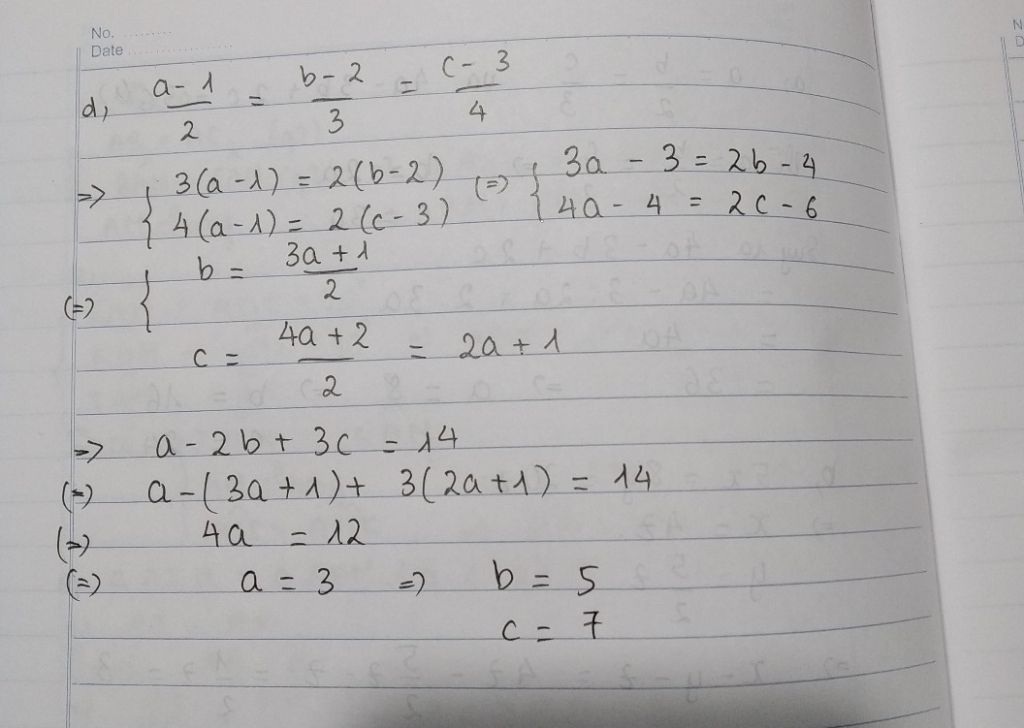 No. ..........
Date ....................
d, (a-1)/2 = (b-2)/3 = (c-3)/4
=> { 3(a-1) = 2(b-2) (=) { 3a - 3 = 2b - 4
4(a-1) = 2(c-3) 4a - 4 = 2c - 6
(=) { b = (3a+1)/2
c = (4a+2)/2 = 2a + 1
=> a - 2b + 3c = 14
(=) a - (3a+1) + 3(2a+1) = 14
(=) 4a = 12
(=) a = 3 => b = 5
c = 7